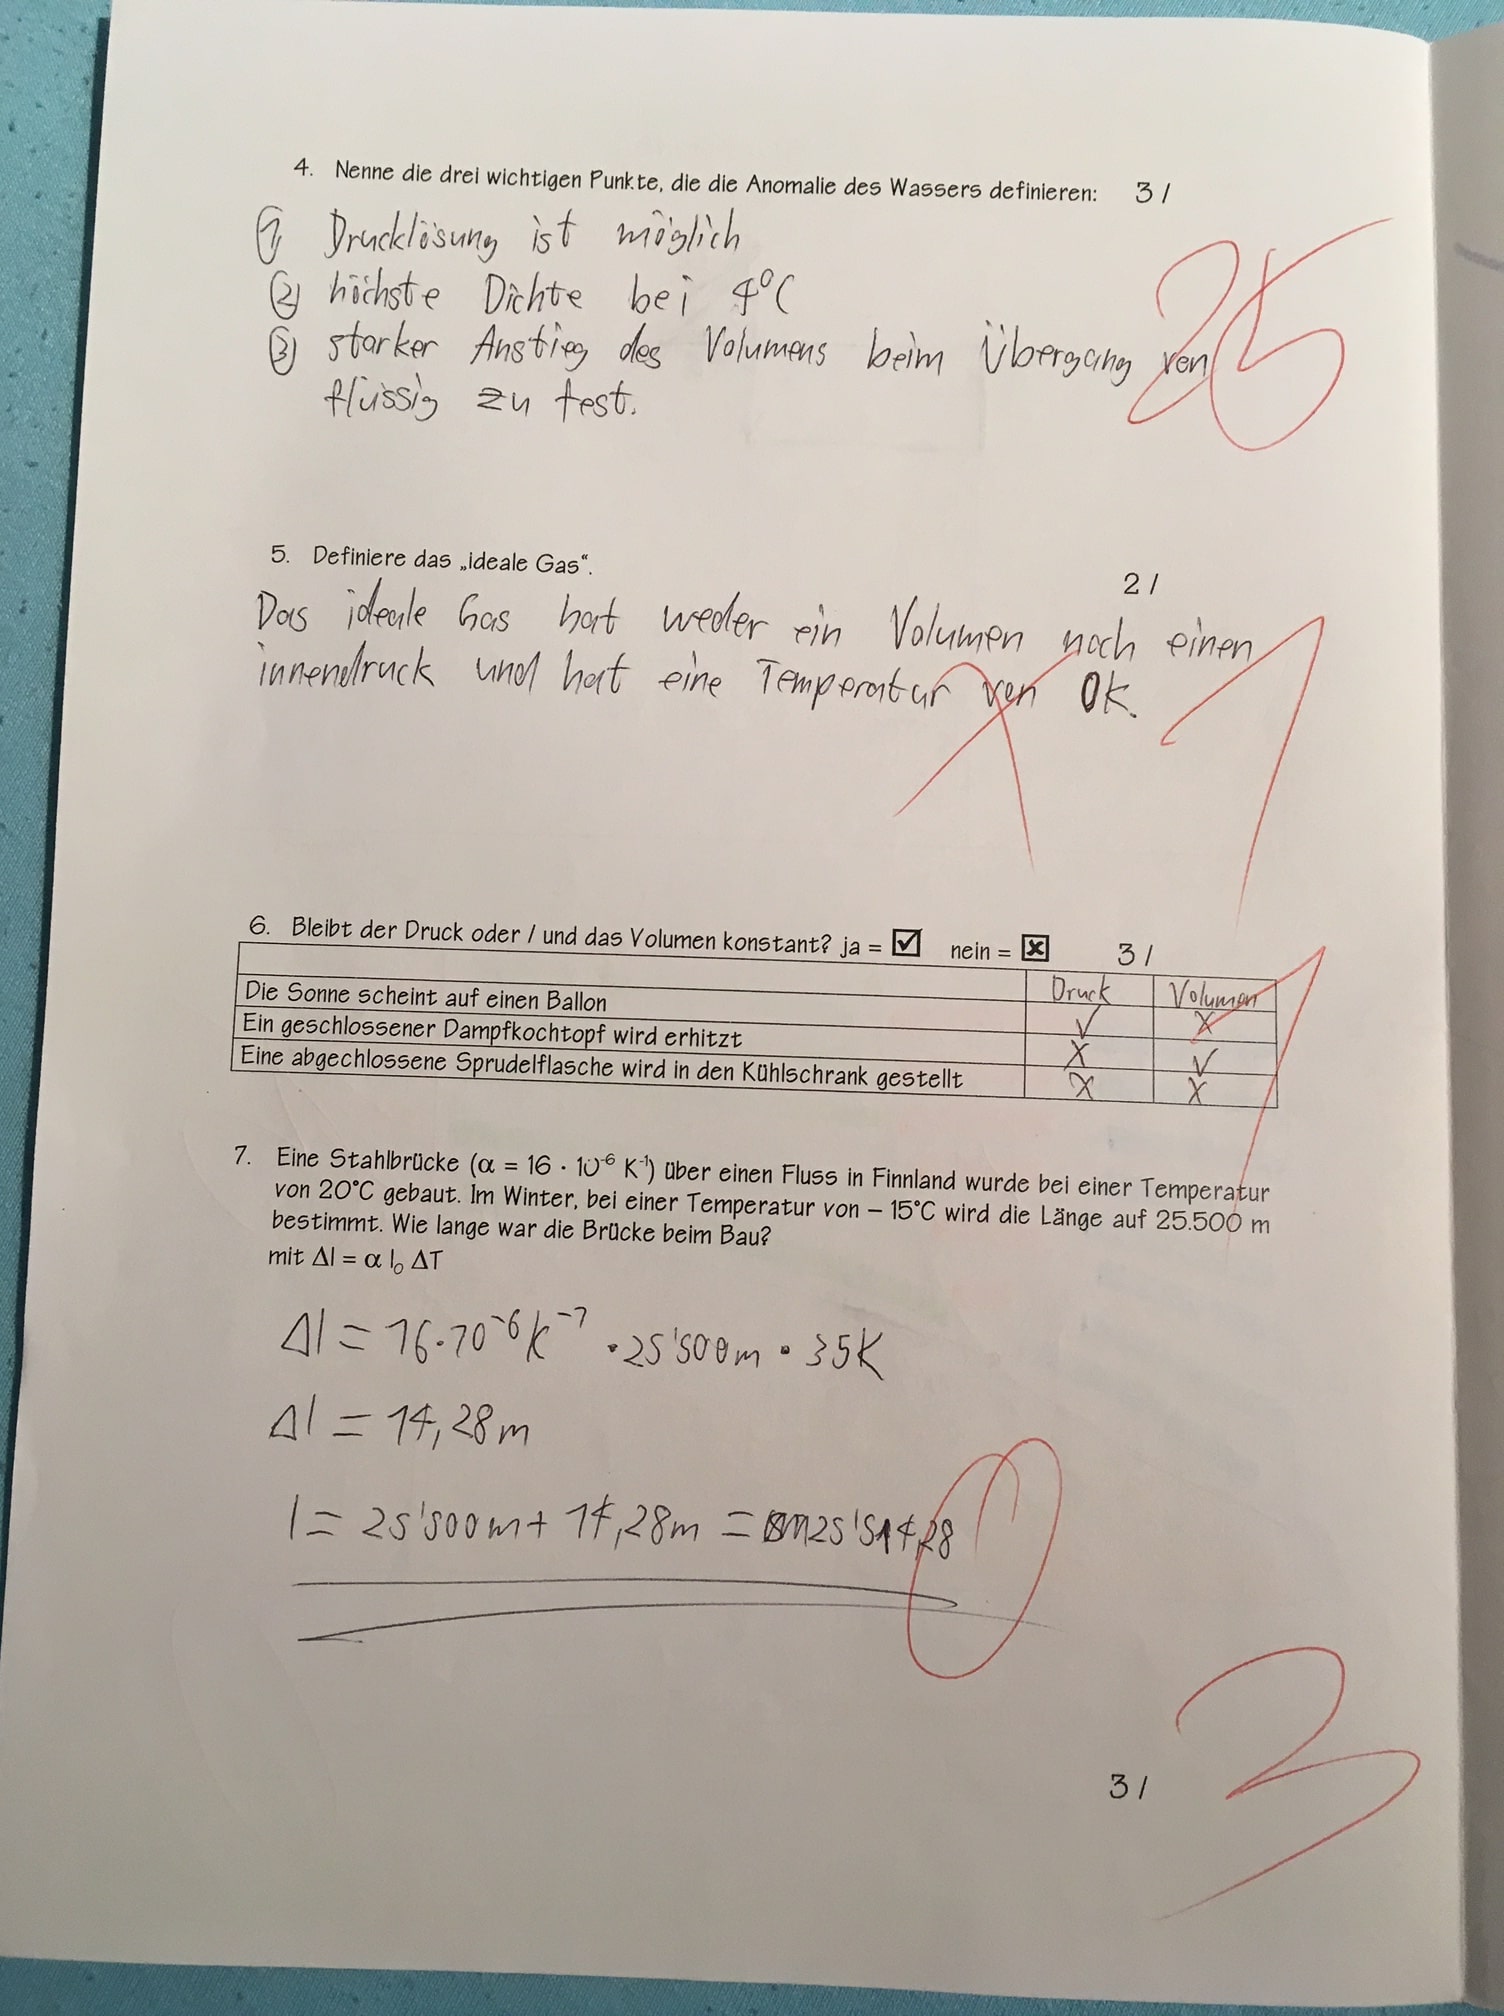 4. Nenne die drei wichtigen Punkte, die die Anomalie des Wassers definieren: 3 /
① Drucklösung ist möglich
② höchste Dichte bei 4°C
③ starker Anstieg des Volumens beim Übergang von
flüssig zu fest.
25
5. Definiere das „ideale Gas“.
2 /
Das ideale Gas hat weder ein Volumen noch einen
innendruck und hat eine Temperatur von 0K.
1
6. Bleibt der Druck oder / und das Volumen konstant? ja = ☑ nein = ☒ 3 /
Druck Volumen
Die Sonne scheint auf einen Ballon ✓ X
Ein geschlossener Dampfkochtopf wird erhitzt X ✓
Eine abgechlossene Sprudelflasche wird in den Kühlschrank gestellt X X
1
7. Eine Stahlbrücke (α = 16 · 10⁻⁶ K⁻¹) über einen Fluss in Finnland wurde bei einer Temperatur
von 20°C gebaut. Im Winter, bei einer Temperatur von – 15°C wird die Länge auf 25.500 m
bestimmt. Wie lange war die Brücke beim Bau?
mit Δl = α l₀ ΔT
Δl = 16·10⁻⁶K⁻¹ · 25'500m · 35K
Δl = 14,28m
l = 25'500m + 14,28m = 25'514,28
0
3 / 3